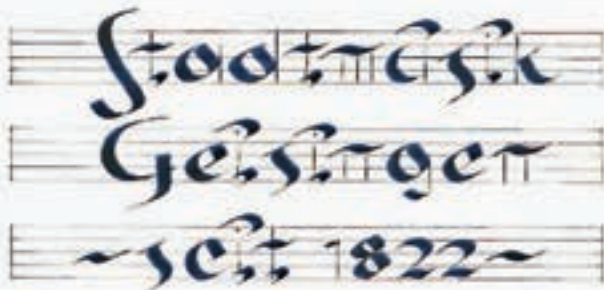 Stadtmusik
Geisingen
~seit 1822~